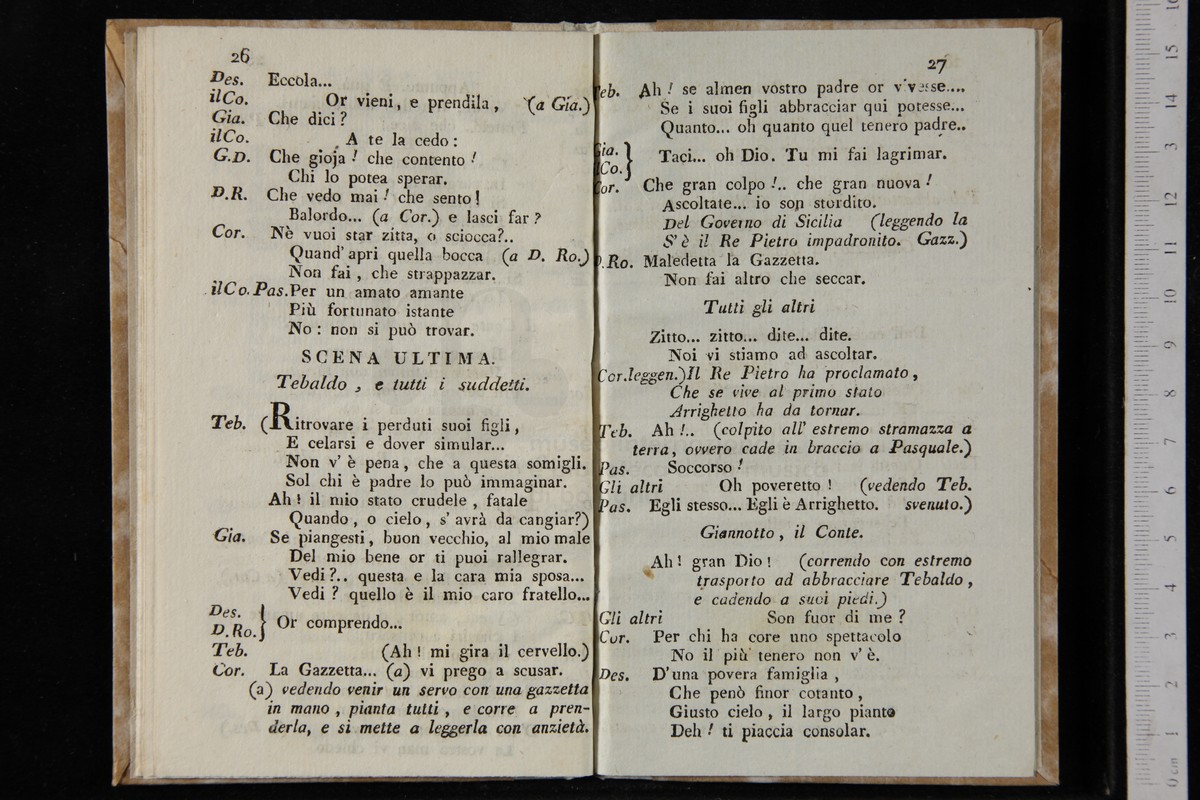 26
Des. Eccola...
ilCo. Or vieni, e prendila, (a Gia.)
Gia. Che dici?
ilCo. A te la cedo:
G.D. Che gioja! che contento!
Chi lo potea sperar.
D.R. Che vedo mai! che sento!
Balordo... (a Cor.) e lasci far?
Cor. Nè vuoi star zitta, o sciocca?..
Quand' apri quella bocca (a D. Ro.)
Non fai, che strappazzar.
ilCo.Pas.Per un amato amante
Più fortunato istante
No: non si può trovar.
SCENA ULTIMA.
Tebaldo, e tutti i suddetti.
Teb. (Ritrovare i perduti suoi figli,
E celarsi e dover simular...
Non v' è pena, che a questa somigli.
Sol chi è padre lo può immaginar.
Ah! il mio stato crudele, fatale
Quando, o cielo, s' avrà da cangiar?)
Gia. Se piangesti, buon vecchio, al mio male
Del mio bene or ti puoi rallegrar.
Vedi?.. questa e la cara mia sposa...
Vedi? quello è il mio caro fratello...
Des.
D.Ro.} Or comprendo...
Teb. (Ah! mi gira il cervello.)
Cor. La Gazzetta... (a) vi prego a scusar.
(a) vedendo venir un servo con una gazzetta
in mano, pianta tutti, e corre a pren-
derla, e si mette a leggerla con anzietà.
27
eb. Ah! se almen vostro padre or vivesse....
Se i suoi figli abbracciar qui potesse...
Quanto... oh quanto quel tenero padre..
Gia.
Co.} Taci... oh Dio. Tu mi fai lagrimar.
or. Che gran colpo!.. che gran nuova!
Ascoltate... io son stordito.
Del Governo di Sicilia (leggendo la
S' è il Re Pietro impadronito. Gazz.)
D.Ro. Maledetta la Gazzetta.
Non fai altro che seccar.
Tutti gli altri
Zitto... zitto... dite... dite.
Noi vi stiamo ad ascoltar.
Cor.leggen.)Il Re Pietro ha proclamato,
Che se vive al primo stato
Arrighetto ha da tornar.
Teb. Ah!.. (colpito all' estremo stramazza a
terra, ovvero cade in braccio a Pasquale.)
Pas. Soccorso!
Gli altri Oh poveretto! (vedendo Teb.
Pas. Egli stesso... Egli è Arrighetto. svenuto.)
Giannotto, il Conte.
Ah! gran Dio! (correndo con estremo
trasporto ad abbracciare Tebaldo,
e cadendo a suoi piedi.)
Gli altri Son fuor di me?
Cor. Per chi ha core uno spettacolo
No il più tenero non v' è.
Des. D'una povera famiglia,
Che penò finor cotanto,
Giusto cielo, il largo pianto
Deh! ti piaccia consolar.
0 cm 1 2 3 4 5 6 7 8 9 10 11 12 13 14 15 16